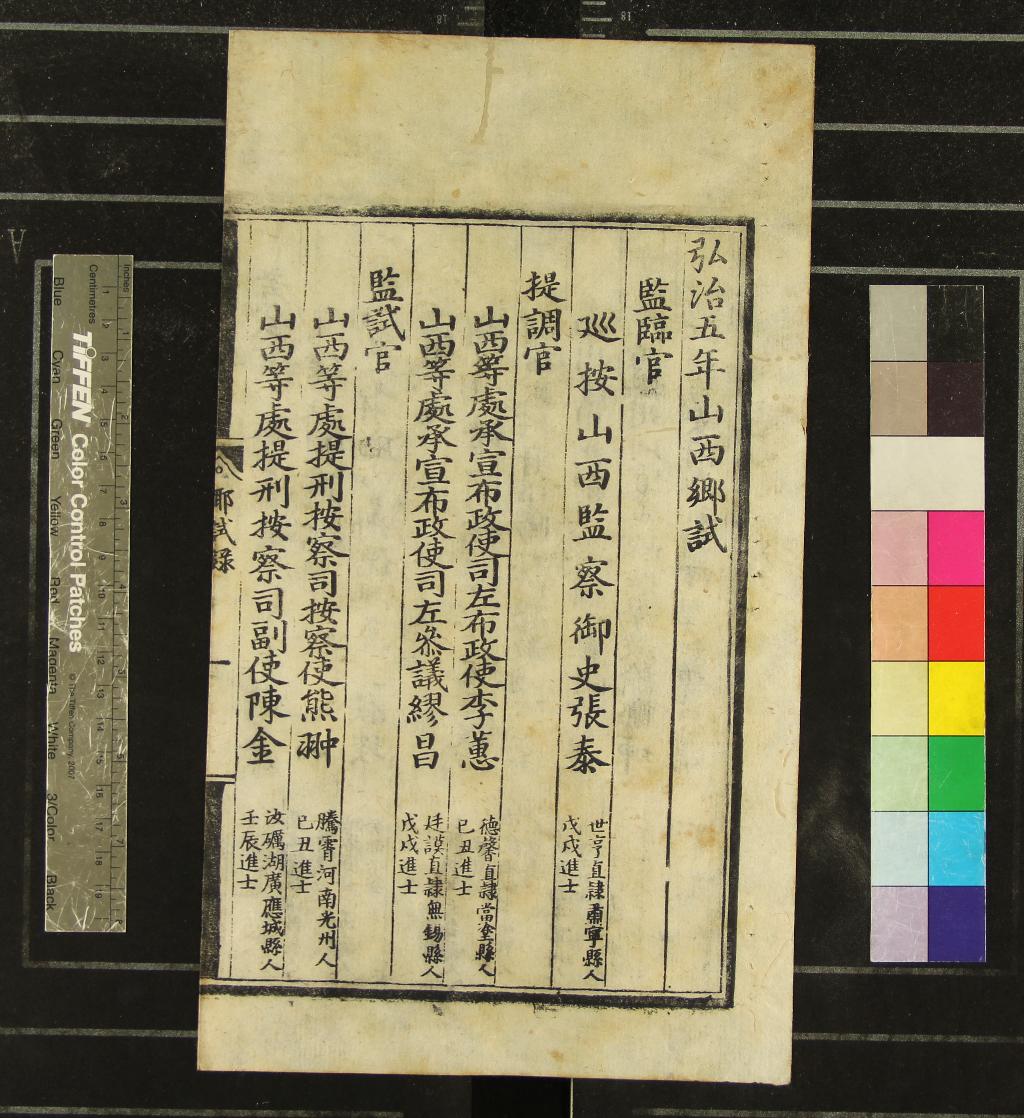 弘治五年山西鄉試
監臨官
巡按山西監察御史張泰
世亨直隸肅寧縣人
戊戌進士
提調官
山西等處承宣布政使司左布政使李蕙
德馨直隸當塗縣人
己丑進士
山西等處承宣布政使司左參議繆昌
廷謨直隸無錫縣人
戊戌進士
監試官
山西等處提刑按察司按察使熊翀
騰霄河南光州人
己丑進士
山西等處提刑按察司副使陳金
汝礪湖廣應城縣人
壬辰進士
鄉試錄
一
Inches
Centimetres
TIFFEN Color Control Patches
© The Tiffen Company, 2007
Blue Cyan Green Yellow Red Magenta White 3/Color Black
18
18
A